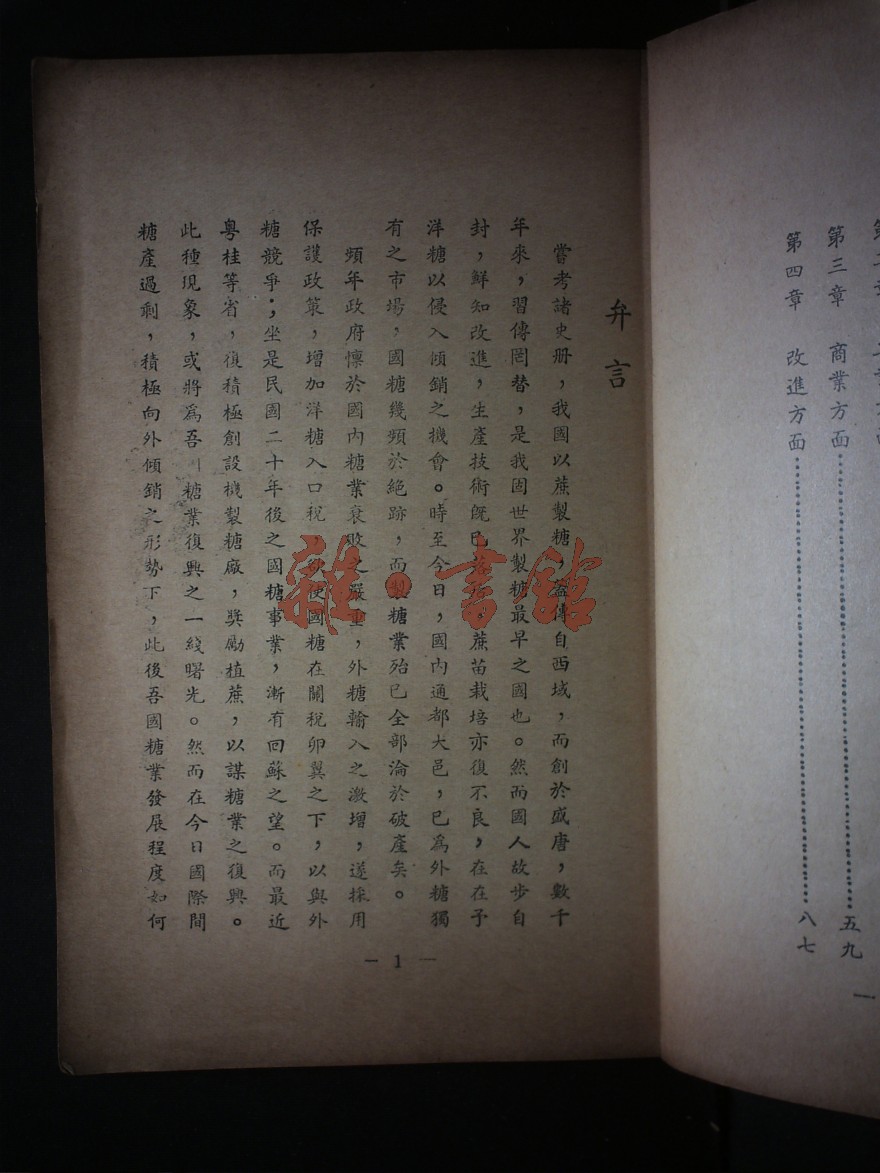 第三章　商業方面……………………五九
第四章　改進方面……………………八七
弁言
嘗考諸史册，我國以蔗製糖，蓋傳自西域，而創於盛唐，數千
年來，習傳罔替，是我固世界製糖最早之國也。然而國人故步自
封，鮮知改進，生產技術旣已，蔗苗栽培亦復不良，在在予
洋糖以侵入傾銷之機會。時至今日，國內通都大邑，已為外糖獨
有之市場，國糖幾頻於絕跡，而製糖業殆已全部淪於破產矣。
頻年政府懔於國內糖業衰敗之嚴重，外糖輸入之激增，遂採用
保護政策，增加洋糖入口稅，欲使國糖在關稅卵翼之下，以與外
糖競爭；坐是民國二十年後之國糖事業，漸有回蘇之望。而最近
粵桂等省，復積極創設機製糖廠，獎勵植蔗，以謀糖業之復興。
此種現象，或將爲吾川糖業復興之一綫曙光。然而在今日國際間
糖產過剩，積極向外傾銷之形勢下，此後吾國糖業發展程度如何
— 1 —
雜·書館